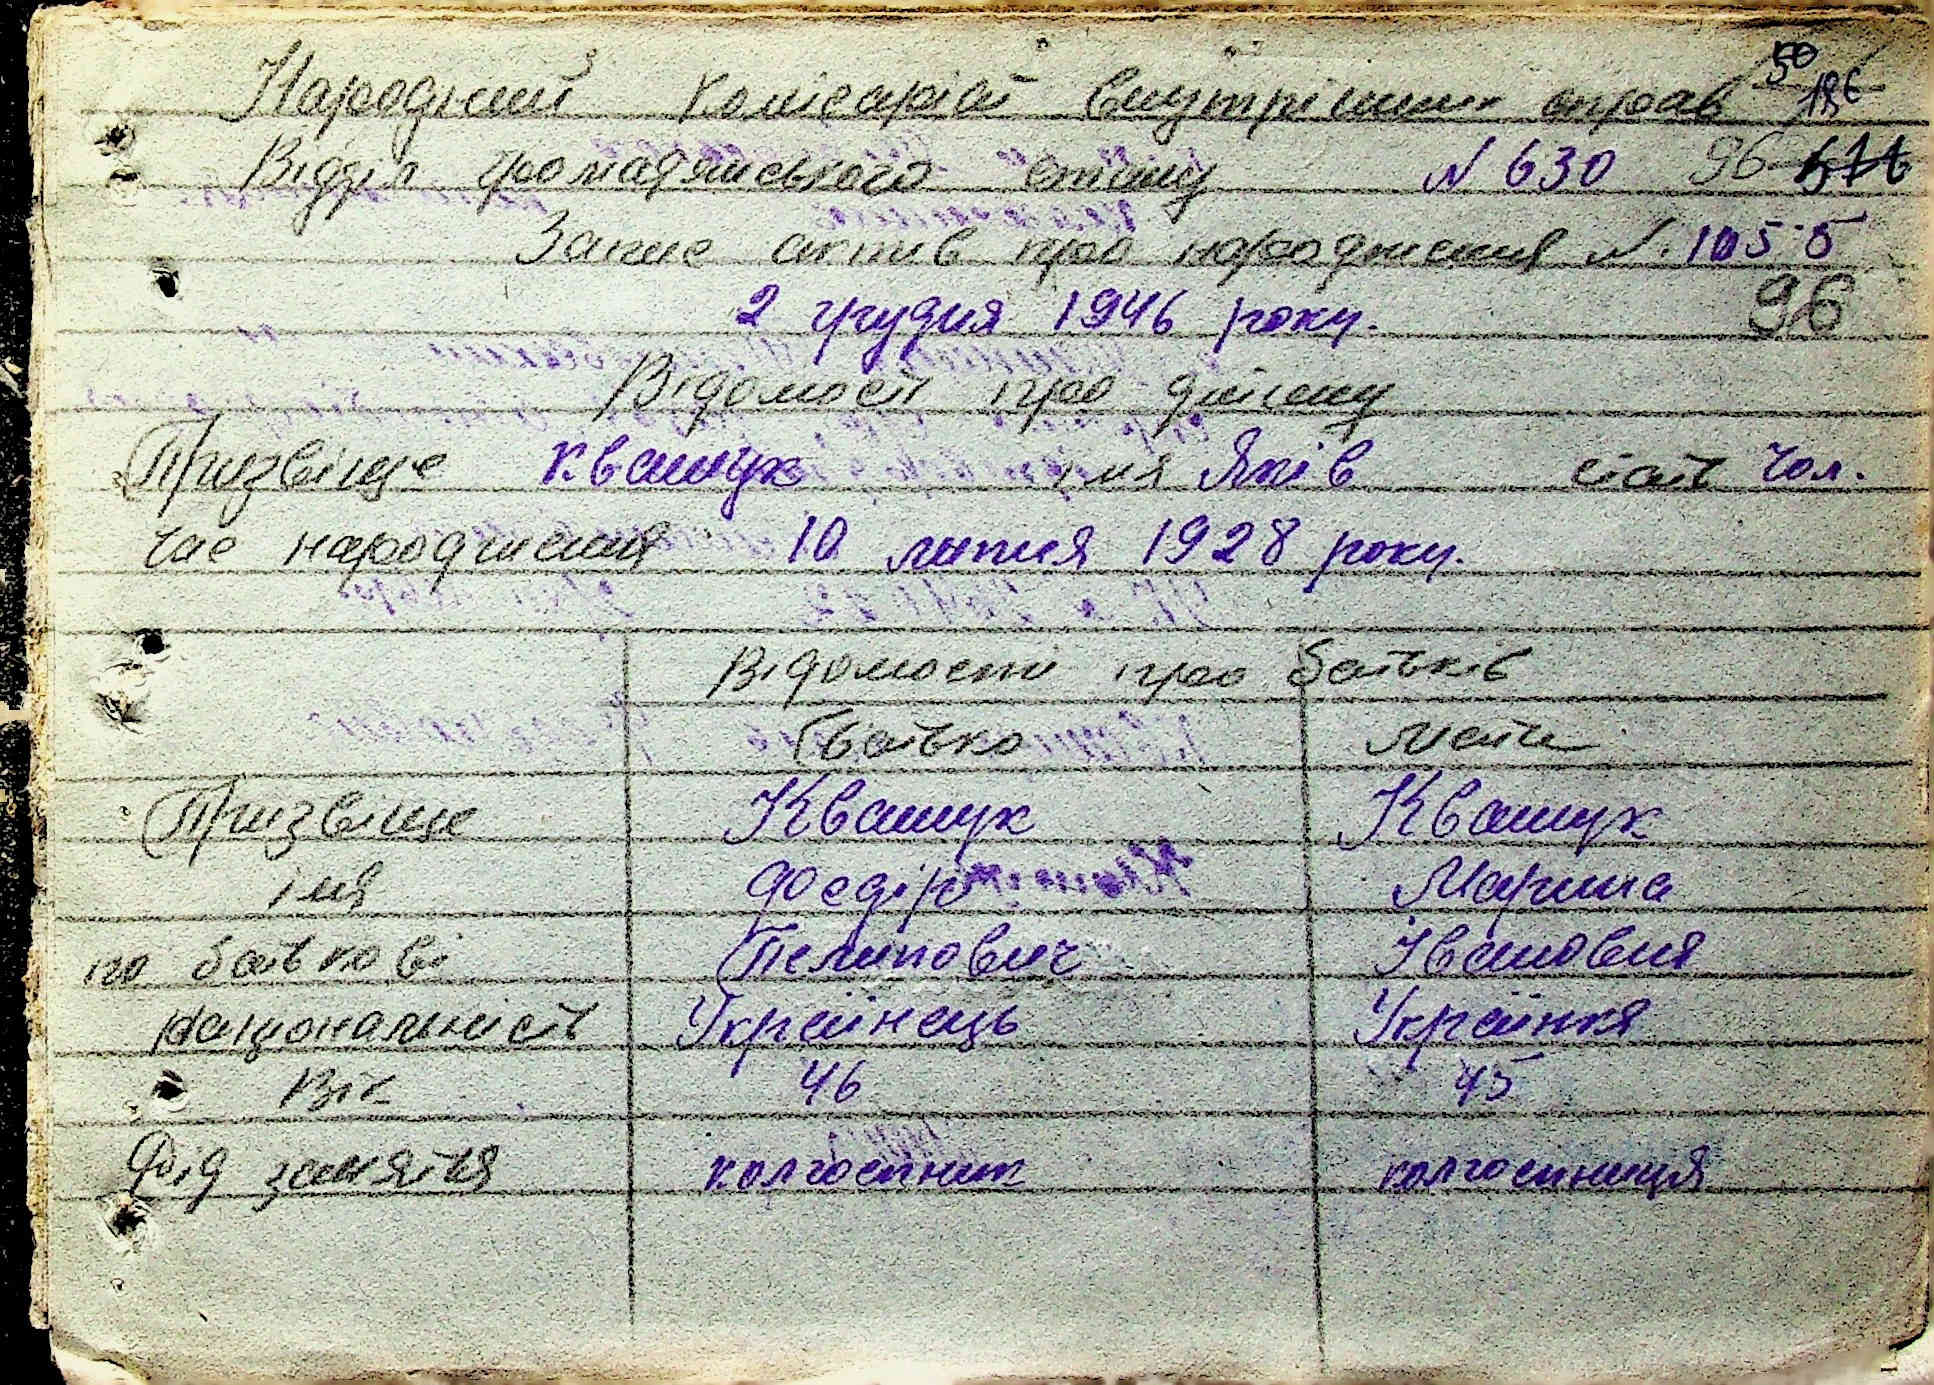 50
186
Народний Комісаріат внутрішних справ
Відділ громадянського стану N 630 96
Запис актив про народження N. 1055
2 грудня 1946 року. 96
Відомості про дитину
Призвіще Квашук імя Яків стать чол.
час народження 10 липня 1928 року.
Відомости про батьків
Батько Мати
Призвіще Квашук Квашук
імя Фоедір Марина
по батькові Пелипович Івановня
Національність Українець Українкя
Вік 46 45
Фід заняття колгоспник колгоспниця